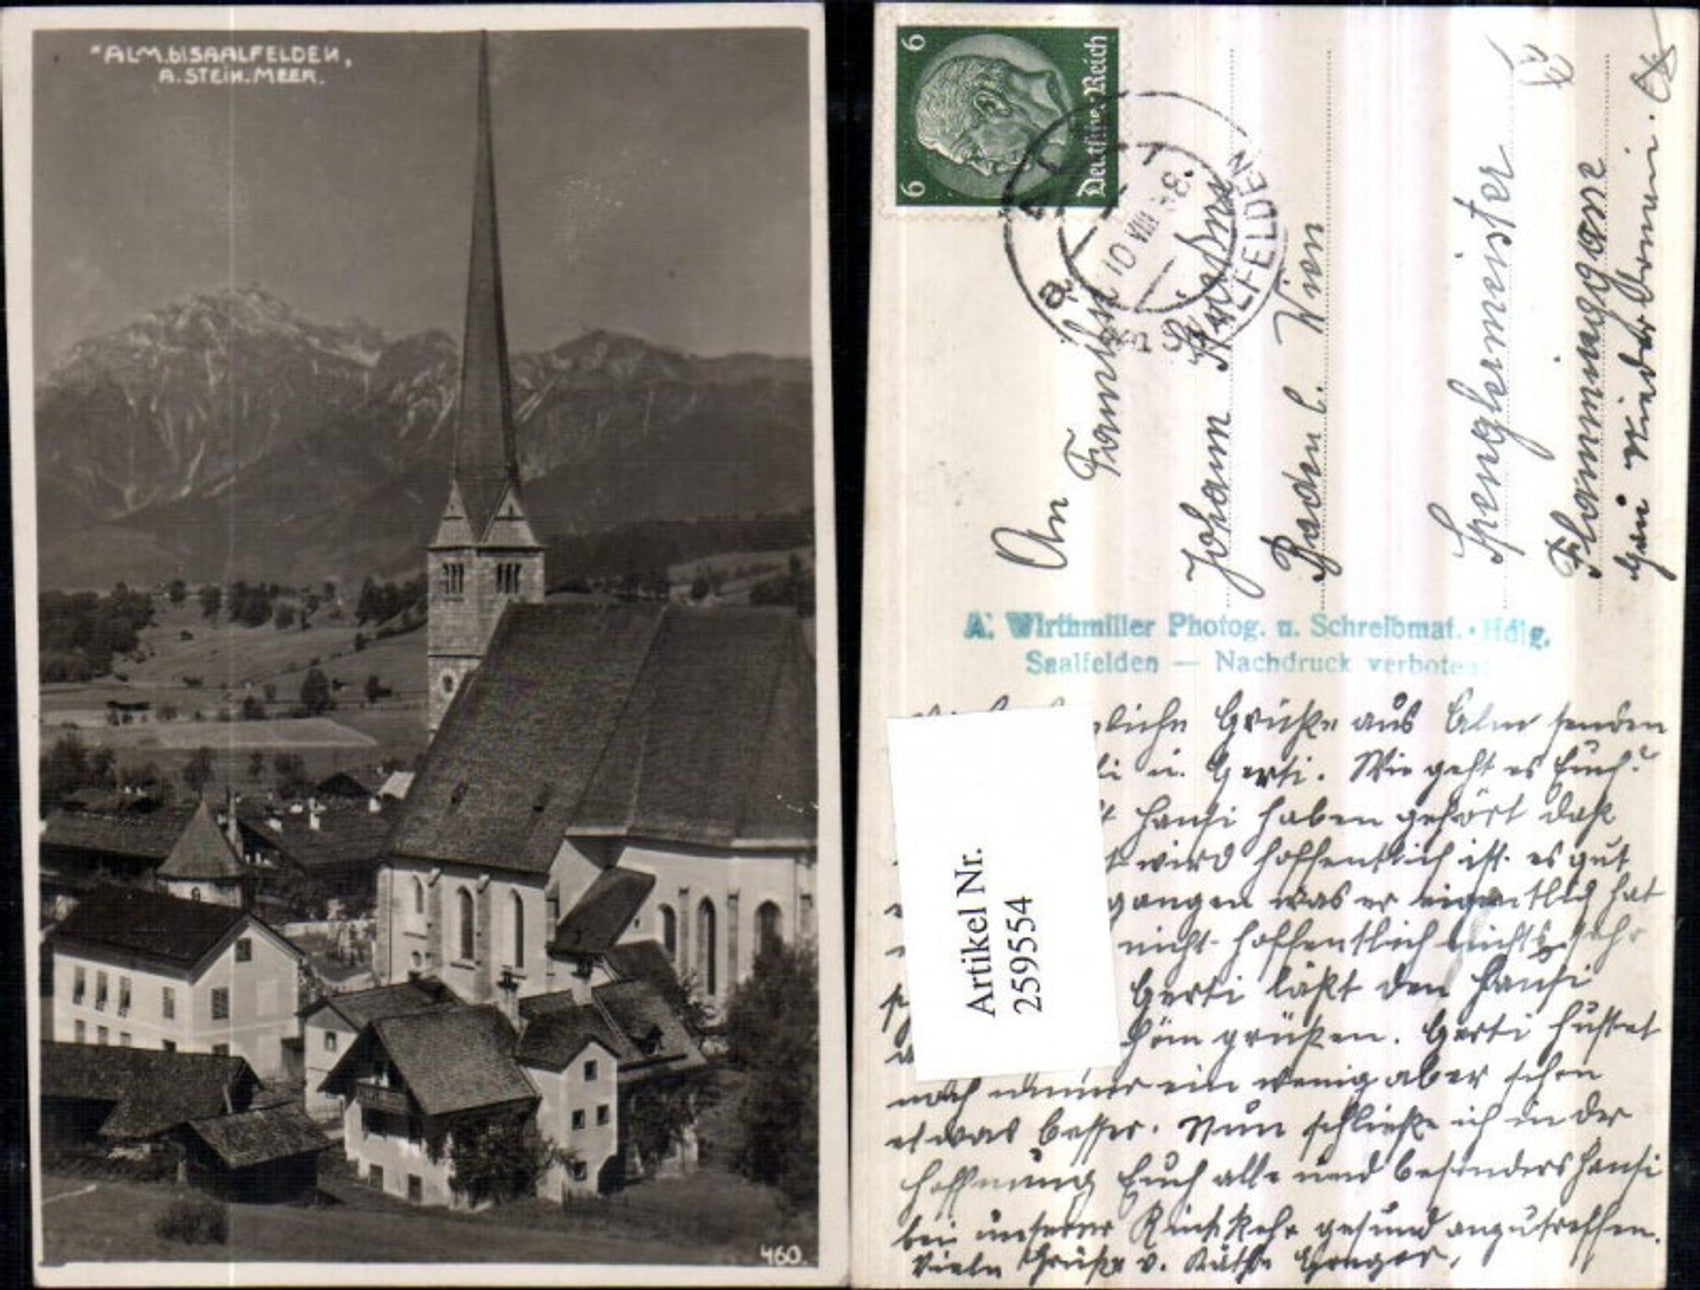 ALM.b/SAALFELDEN,
A. STEIN. MEER.
460.
6 6
Deutsches Reich
10 VIII 38
SAALFELDEN
An
Familie
Johann
Baden b. Wien
Spenglermeister
A. Wirthmiller Photog. u. Schreibmat.-Hdlg.
Saalfelden — Nachdruck verboten
Artikel Nr.
259554
Grüße aus Alm senden
u. Gerti. Wie geht es Euch?
Hansi haben gehört daß
wird hoffentlich ist es gut
gangen was er eigentlich hat
nicht hoffentlich nichts
Gerti läßt den Hansi
grüßen. Gerti hustet
noch immer ein wenig aber schon
etwas besser. Nun schließe ich in der
Hoffnung Euch alle und besonders Hansi
bei unserer Rückkehr gesund anzutreffen.
Viele Grüße v. Käthe